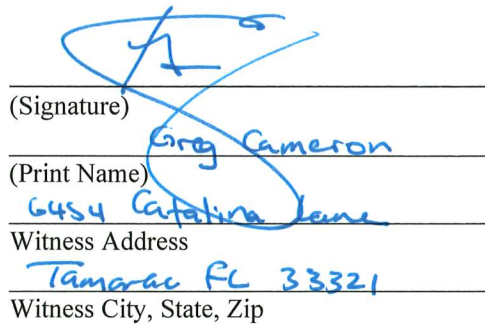 (Signature)
Greg Cameron
(Print Name)
6454 Catalina Lane
Witness Address
Tamarac FL 33321
Witness City, State, Zip